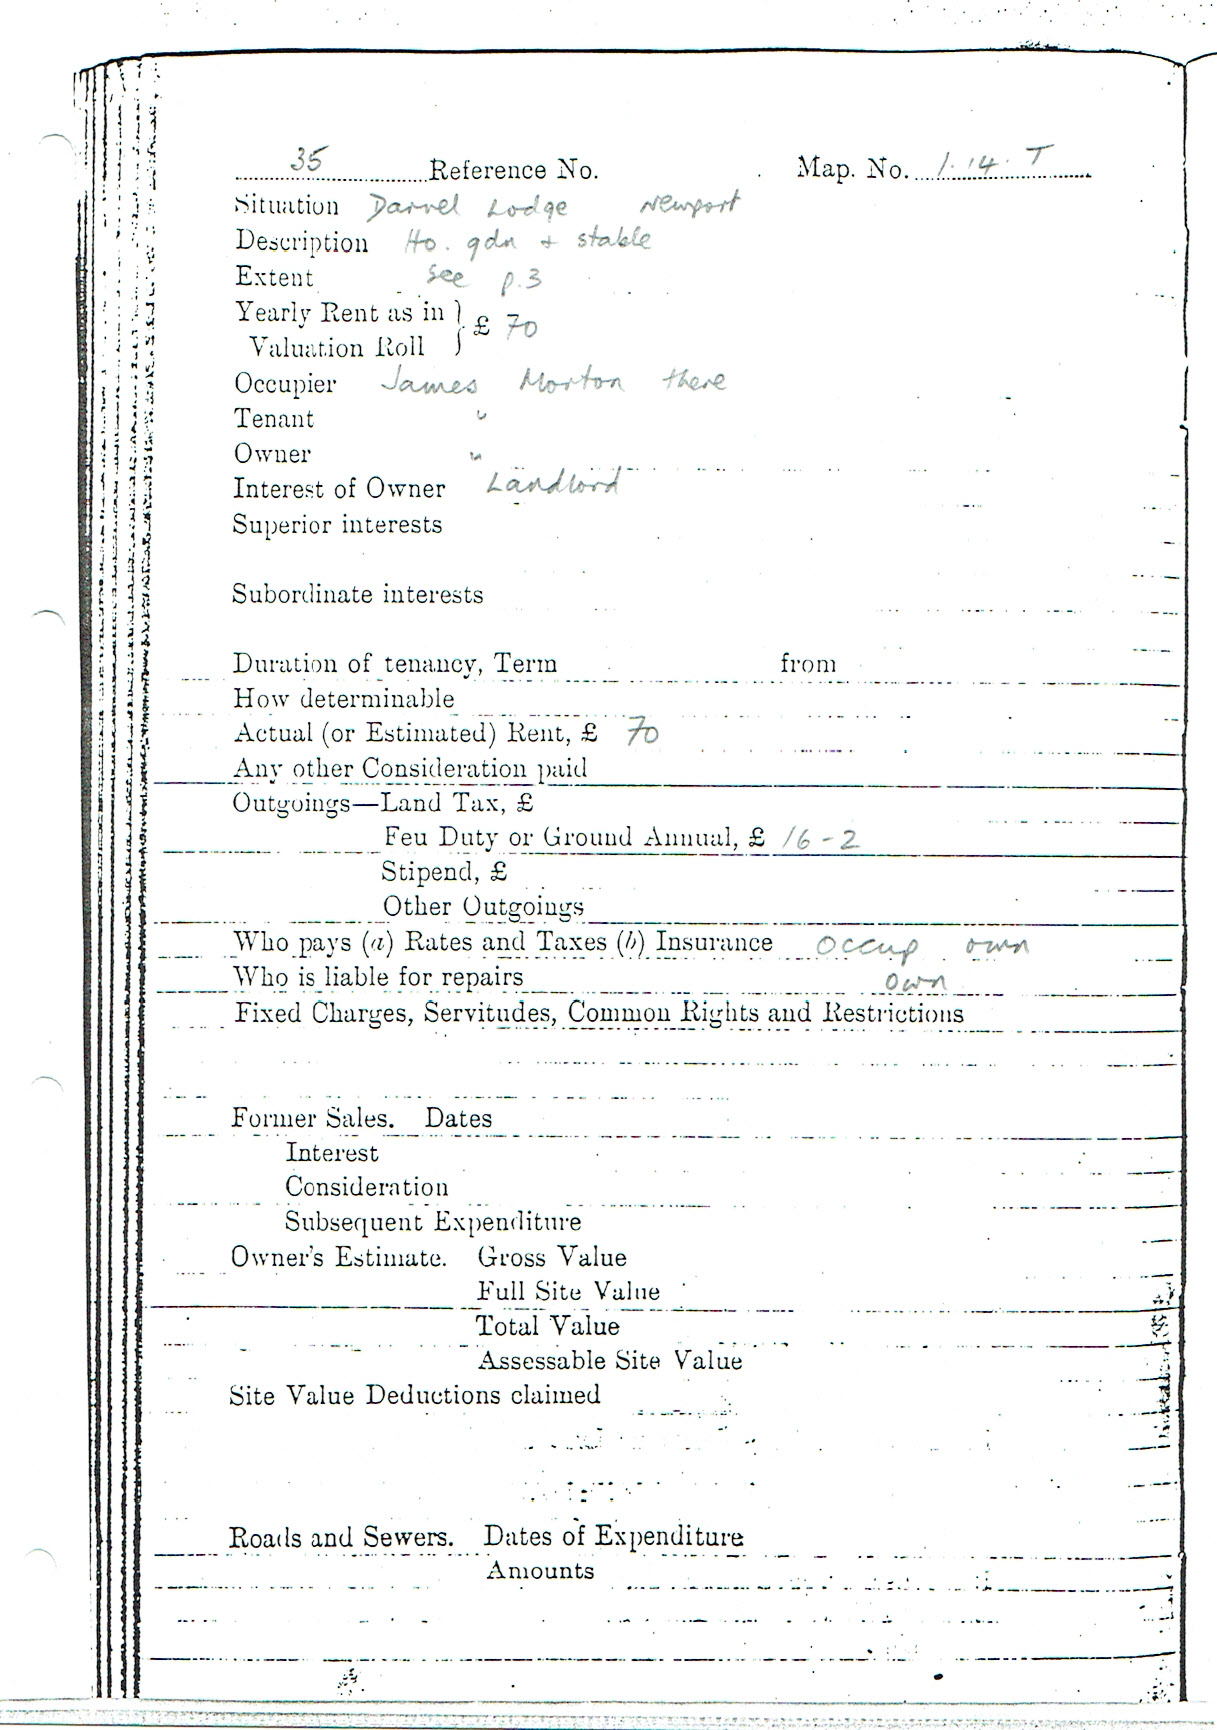 35 Reference No. Map. No. 1.14.T
Situation Darvel Lodge Newport
Description Ho. gdn + stable
Extent See p.3
Yearly Rent as in
Valuation Roll } £ 70
Occupier James Morton there
Tenant "
Owner "
Interest of Owner Landlord
Superior interests
Subordinate interests
Duration of tenancy, Term from
How determinable
Actual (or Estimated) Rent, £ 70
Any other Consideration paid
Outgoings—Land Tax, £
Feu Duty or Ground Annual, £ 16-2
Stipend, £
Other Outgoings
Who pays (a) Rates and Taxes (b) Insurance Occup own
Who is liable for repairs own
Fixed Charges, Servitudes, Common Rights and Restrictions
Former Sales. Dates
Interest
Consideration
Subsequent Expenditure
Owner's Estimate. Gross Value
Full Site Value
Total Value
Assessable Site Value
Site Value Deductions claimed
Roads and Sewers. Dates of Expenditure
Amounts